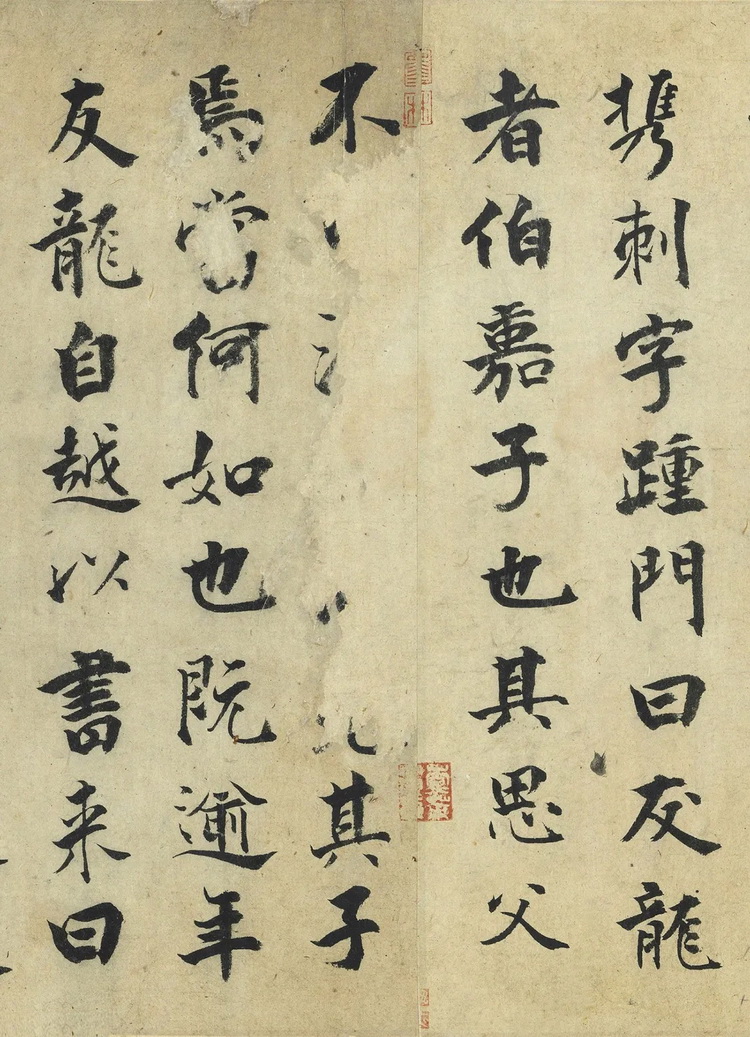 携刺字踵門曰友龍
者伯嘉子也其思父
不其子
焉當何如也既逾年
友龍自越以書来曰